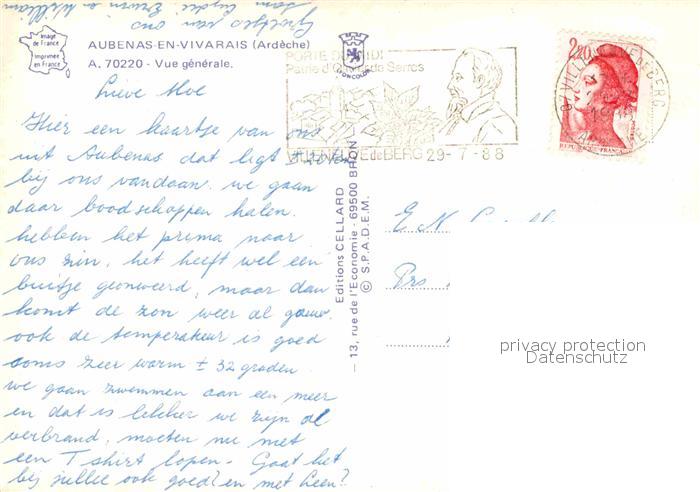 Groetjes van ons
Image de France
Imprimée en France
AUBENAS-EN-VIVARAIS (Ardèche)
A. 70220 - Vue générale.
Lieve Moe
Hier een kaartje van ons
uit Aubenas dat ligt 5 km
bij ons vandaan. we gaan
daar boodschappen halen.
hebben het prima naar
ons zin, het heeft wel een
buitje geonweerd, maar dan
komt de zon weer al gauw.
ook de temperatuur is goed
soms zeer warm ± 32 graden.
we gaan zwemmen aan een meer
en dat is lekker we zijn al
verbrand, moeten nu met
een T shirt lopen. Gaat het
bij jullie ook goed? en met Leen?
PORTE DU MIDI
Patrie d'Olivier de Serres
VILLENEUVE de BERG 29-7-88
07 VILLENEUVE DE BERG
ARDECHE
2,20
REPUBLIQUE FRANÇAISE
LYONCOLOR
Editions CELLARD
13, rue de l'Economie - 69500 BRON
© S.P.A.D.E.M.
privacy protection
Datenschutz